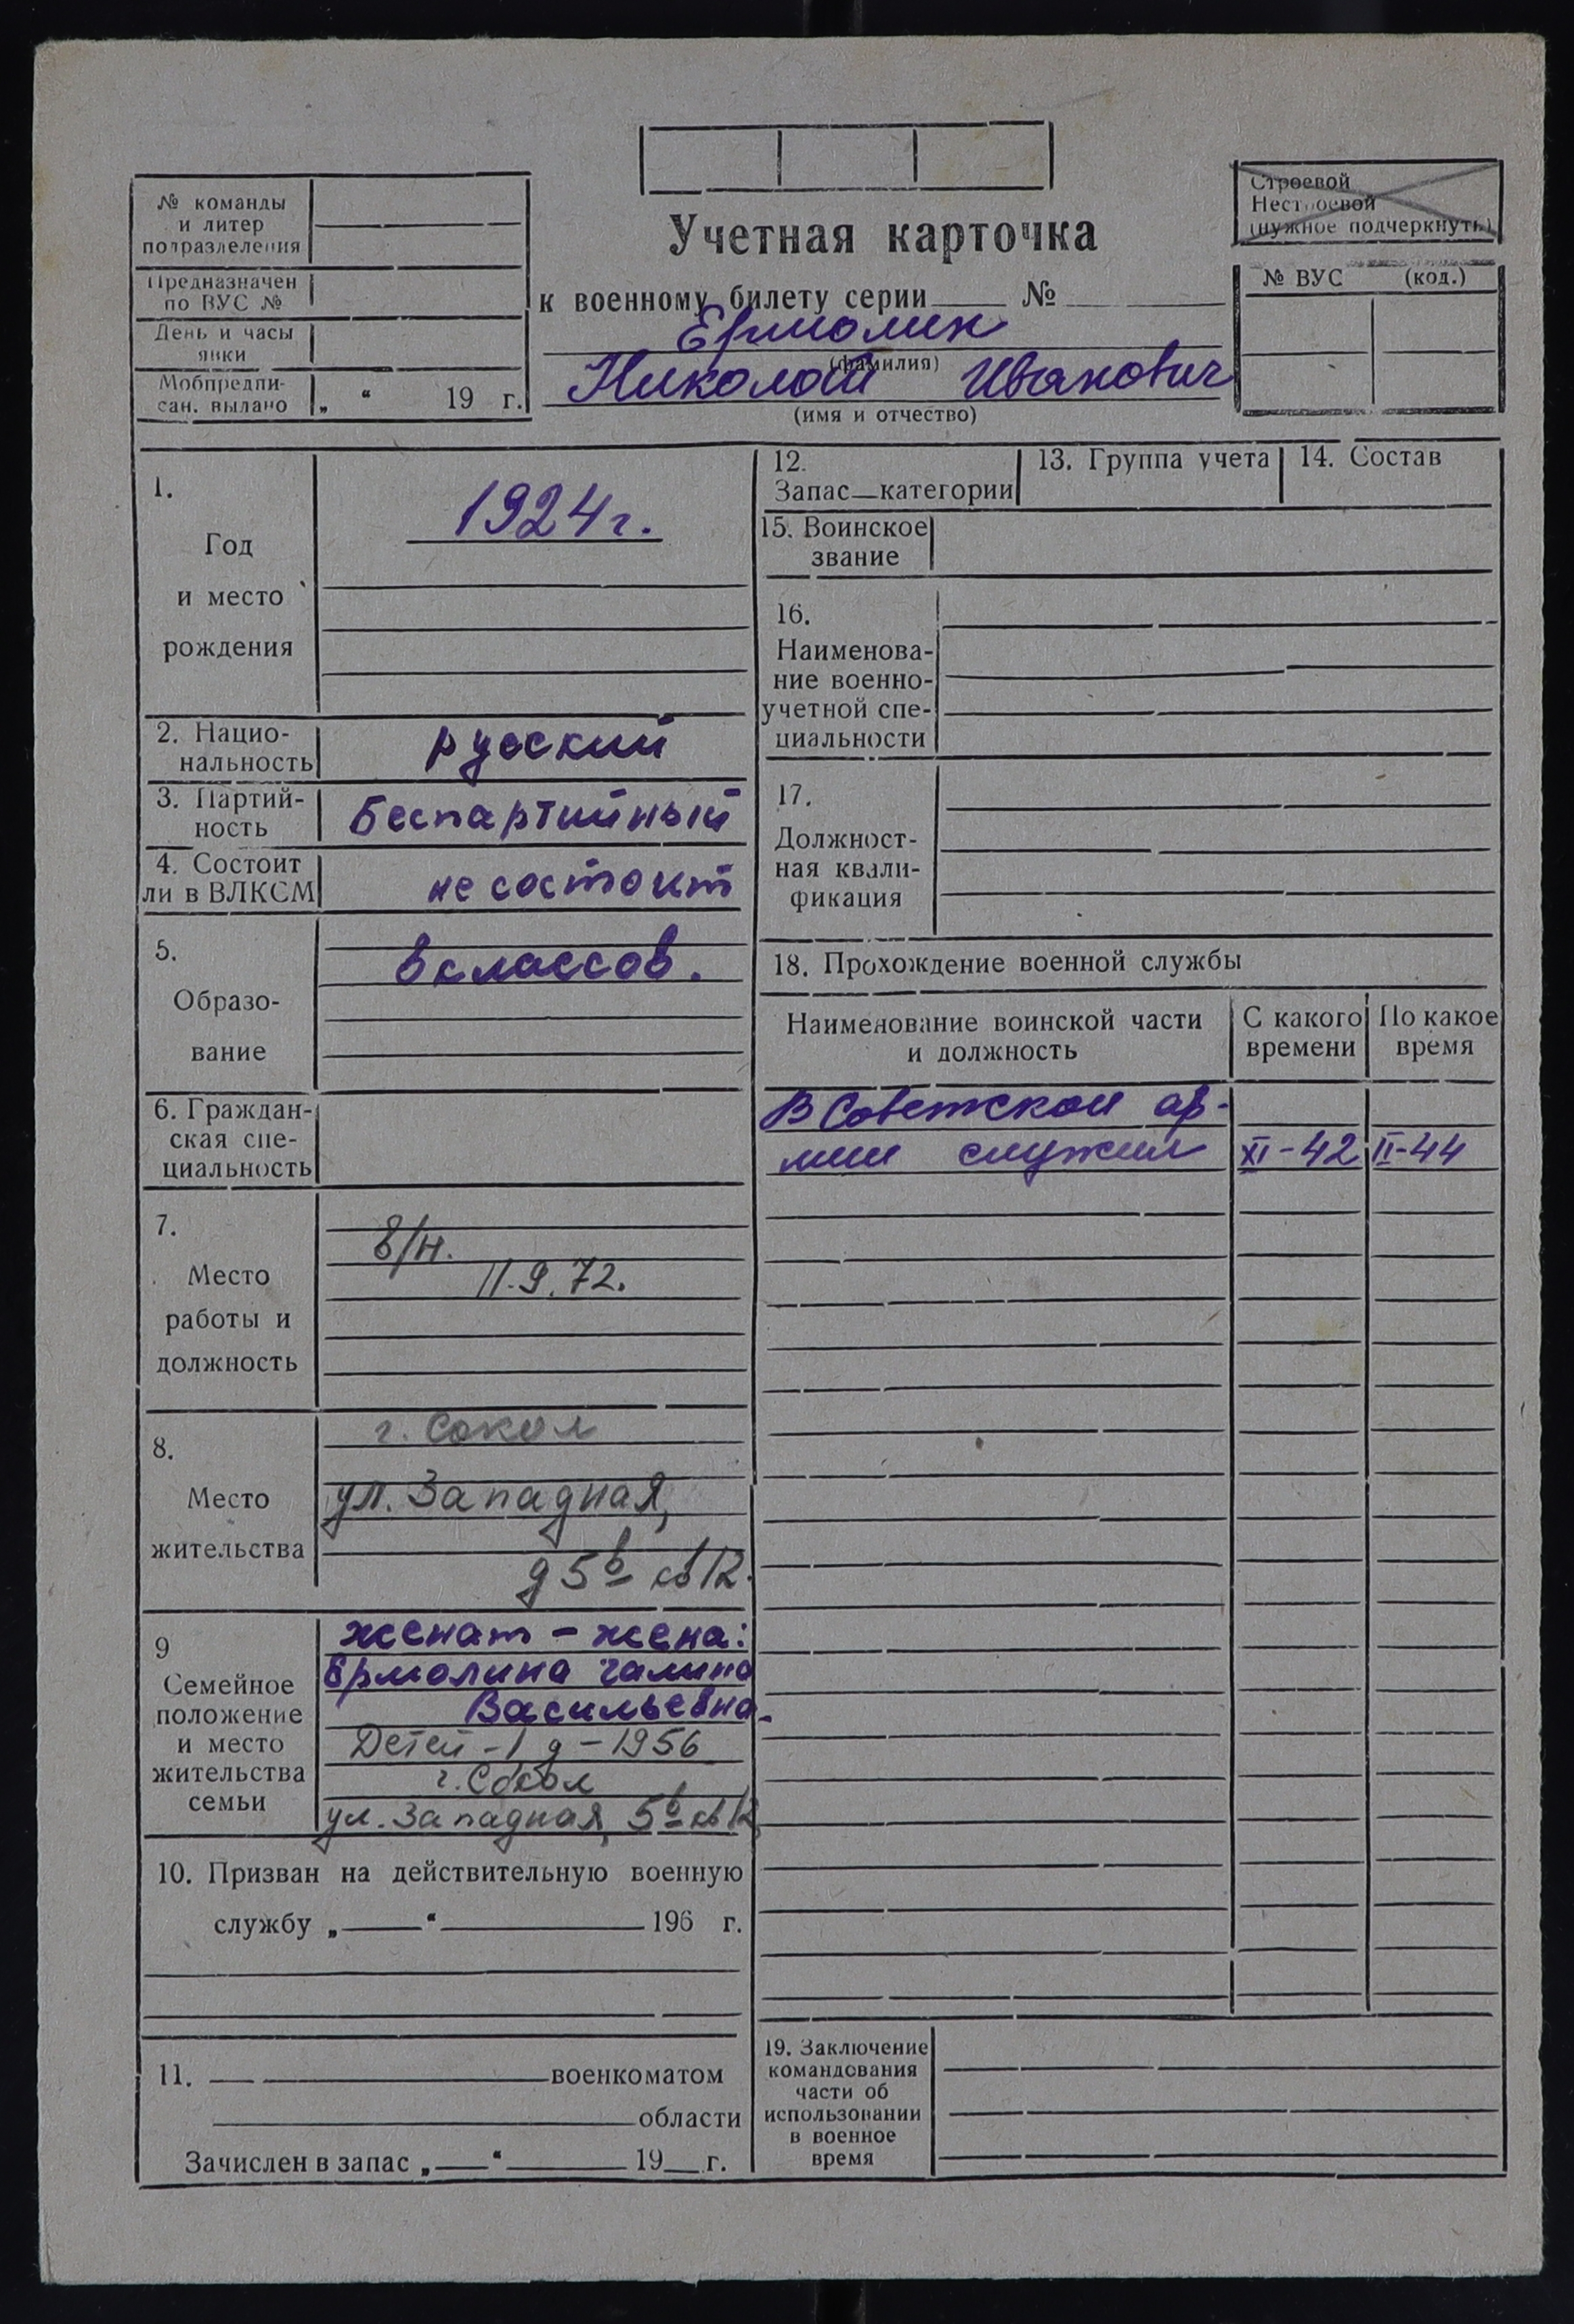 № команды
и литер
подразделения
Предназначен
по ВУС №
День и часы
явки
Мобпредпи-
сан. выдано „ “ 19 г.
Учетная карточка
к военному билету серии №
Ермолин
(фамилия)
Николай Иванович
(имя и отчество)
Строевой
Нестроевой
(нужное подчеркнуть)
№ ВУС (код.)
1.
Год
и место
рождения
1924 г.
2. Нацио-
нальность
русский
3. Партий-
ность
Беспартийный
4. Состоит
ли в ВЛКСМ
не состоит
5.
Образо-
вание
8 классов.
6. Граждан-
ская спе-
циальность
7.
Место
работы и
должность
б/н.
11.9.72.
8.
Место
жительства
г. Сокол
ул. Западная,
д 5б кв 12.
9
Семейное
положение
и место
жительства
семьи
женат - жена:
Ермолина Галина
Васильевна.
Детей - 1 д - 1956
г. Сокол
ул. Западная, 5б кв 12
10. Призван на действительную военную
службу „ “ 196 г.
11. военкоматом
области
Зачислен в запас „ “ 19 г.
12.
Запас—категории
13. Группа учета
14. Состав
15. Воинское
звание
16.
Наименова-
ние военно-
учетной спе-
циальности
17.
Должност-
ная квали-
фикация
18. Прохождение военной службы
Наименование воинской части
и должность
С какого
времени
По какое
время
В Советской ар-
мии служил XI-42 II-44
19. Заключение
командования
части об
использовании
в военное
время